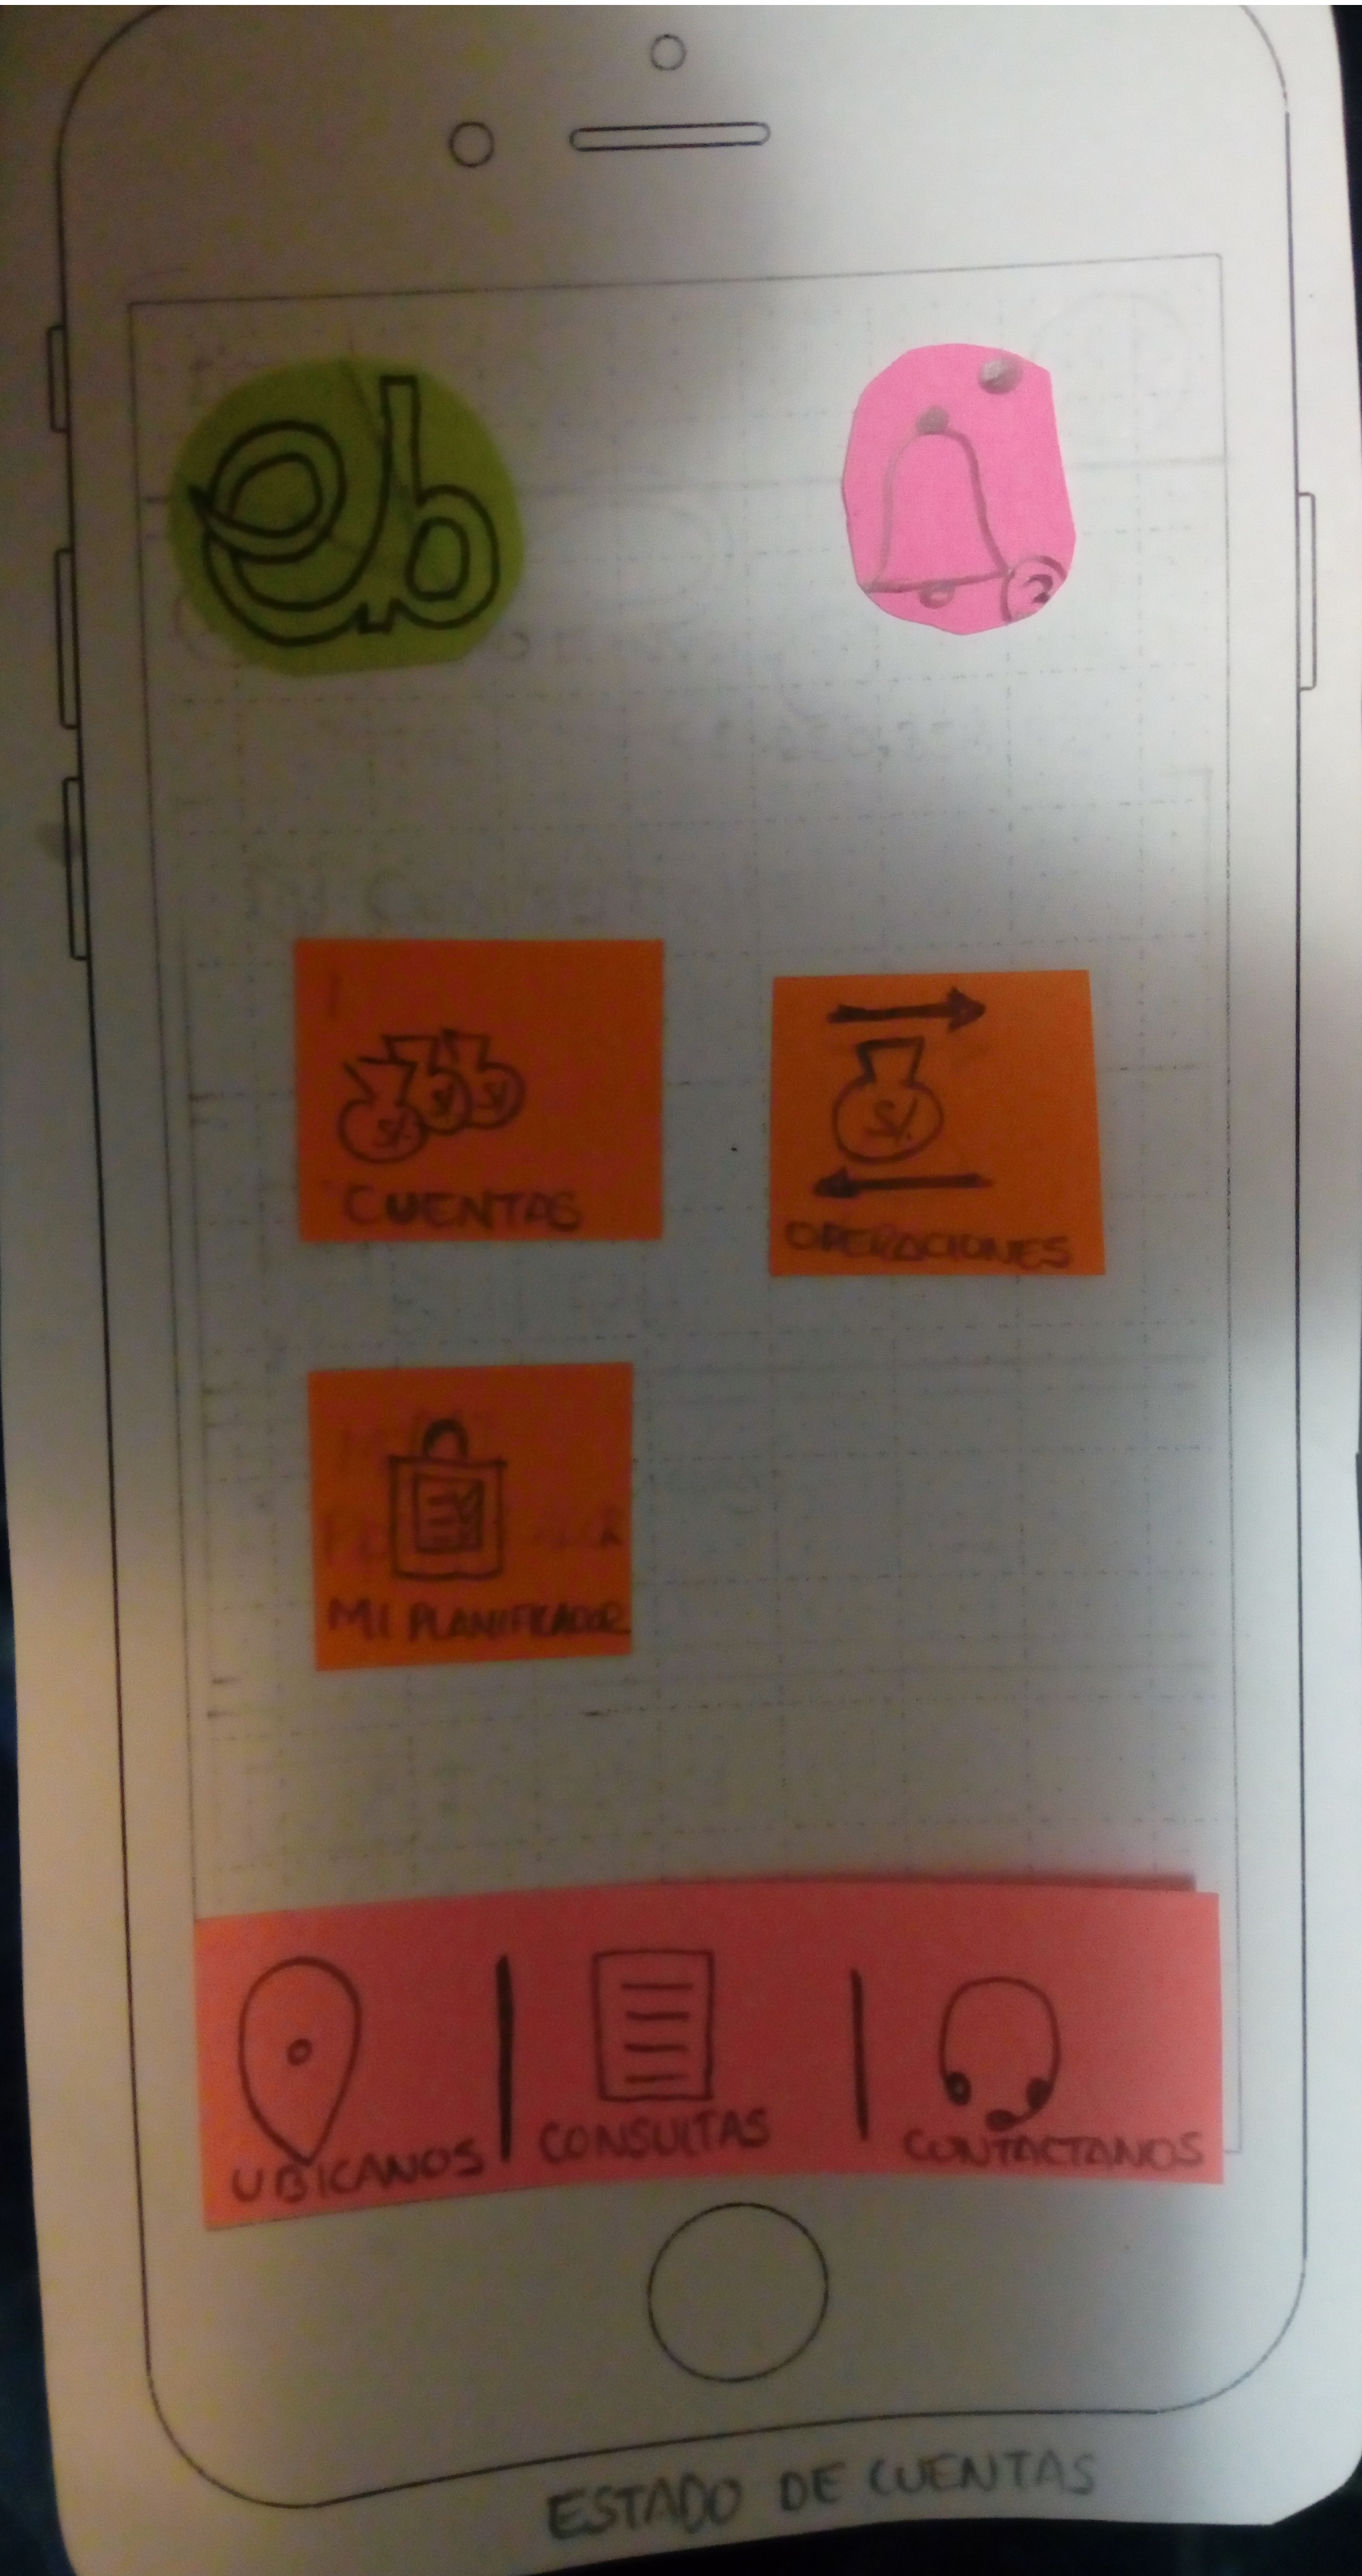 eb
2
S/. S/. S/.
CUENTAS
S/.
OPERACIONES
MI PLANIFICADOR
UBICANOS
CONSULTAS
CONTACTANOS
ESTADO DE CUENTAS